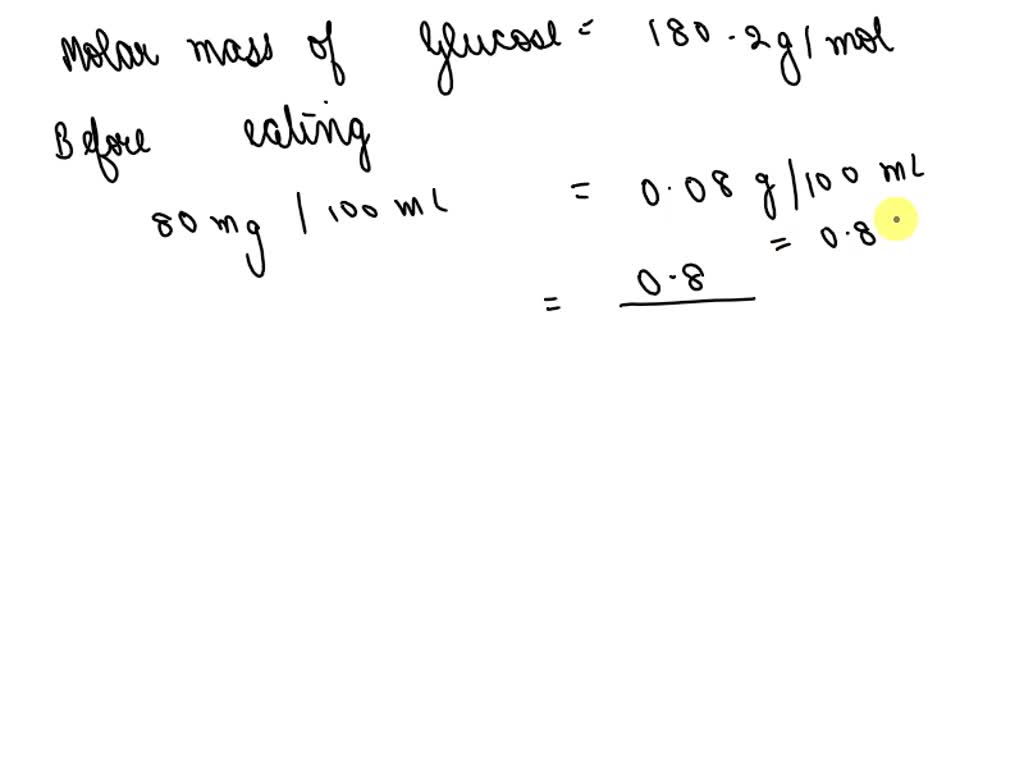 Molar mass of Glucose = 180.2g/mol
Before eating
80 mg / 100 mL = 0.08 g/100 mL
= 0.8
= 0.8